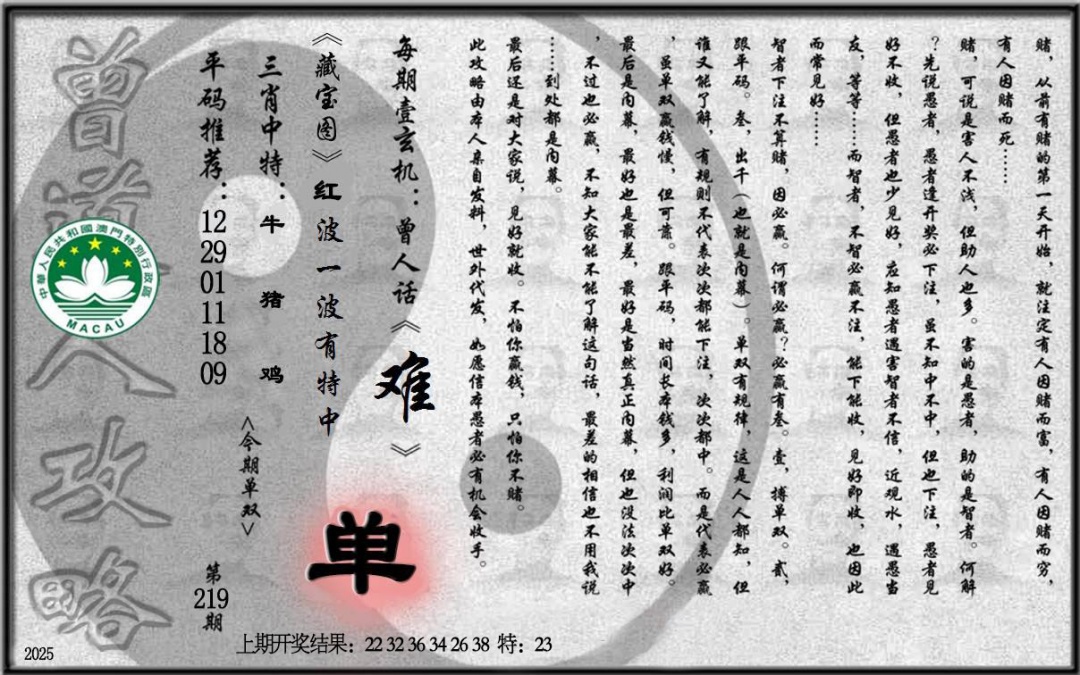 赌，从前有赌的第一天开始，就注定有人因赌而富，有人因赌而穷，
有人因赌而死……
赌，可说是害人不浅，但助人也多。害的是愚者，助的是智者。何解
？先说愚者，愚者逢开奖必下注，虽不知中不中，但也下注，愚者见
好不收，但愚者也少见好，应知愚者遇害智者不信，近观水，遇愚当
友，等等……而智者，不智必赢不注，能下能收，见好即收，也因此
而常见好……
智者下注不算赌，因必赢。何谓必赢？必赢有叁。壹，搏单双。贰，
跟平码。叁，出千（也就是内幕）。单双有规律，这是人人都知，但
谁又能了解，有规则不代表次次都能下注，次次都中。而是代表必赢
，虽单双赢钱慢，但可靠。跟平码，时间长本钱多，利润比单双好。
最后是内幕，最好也是最差，最好是当然真正内幕，但也没法次次中
，不过也必赢，不知大家能不能了解这句话，最差的相信也不用我说
……到处都是内幕。
最后还是对大家说，见好就收。不怕你赢钱，只怕你不赌。
此攻略由本人亲自发料，世外代发，如愿信本愚者必有机会收手。
每期壹玄机：曾人话《难》
《藏宝图》红波一波有特中
单
三肖中特：牛 猪 鸡
<今期单双>
平码推荐：12 29 01 11 18 09
第219期
曾道人攻略
中華人民共和國澳門特別行政區
MACAU
上期开奖结果：22 32 36 34 26 38 特：23
2025